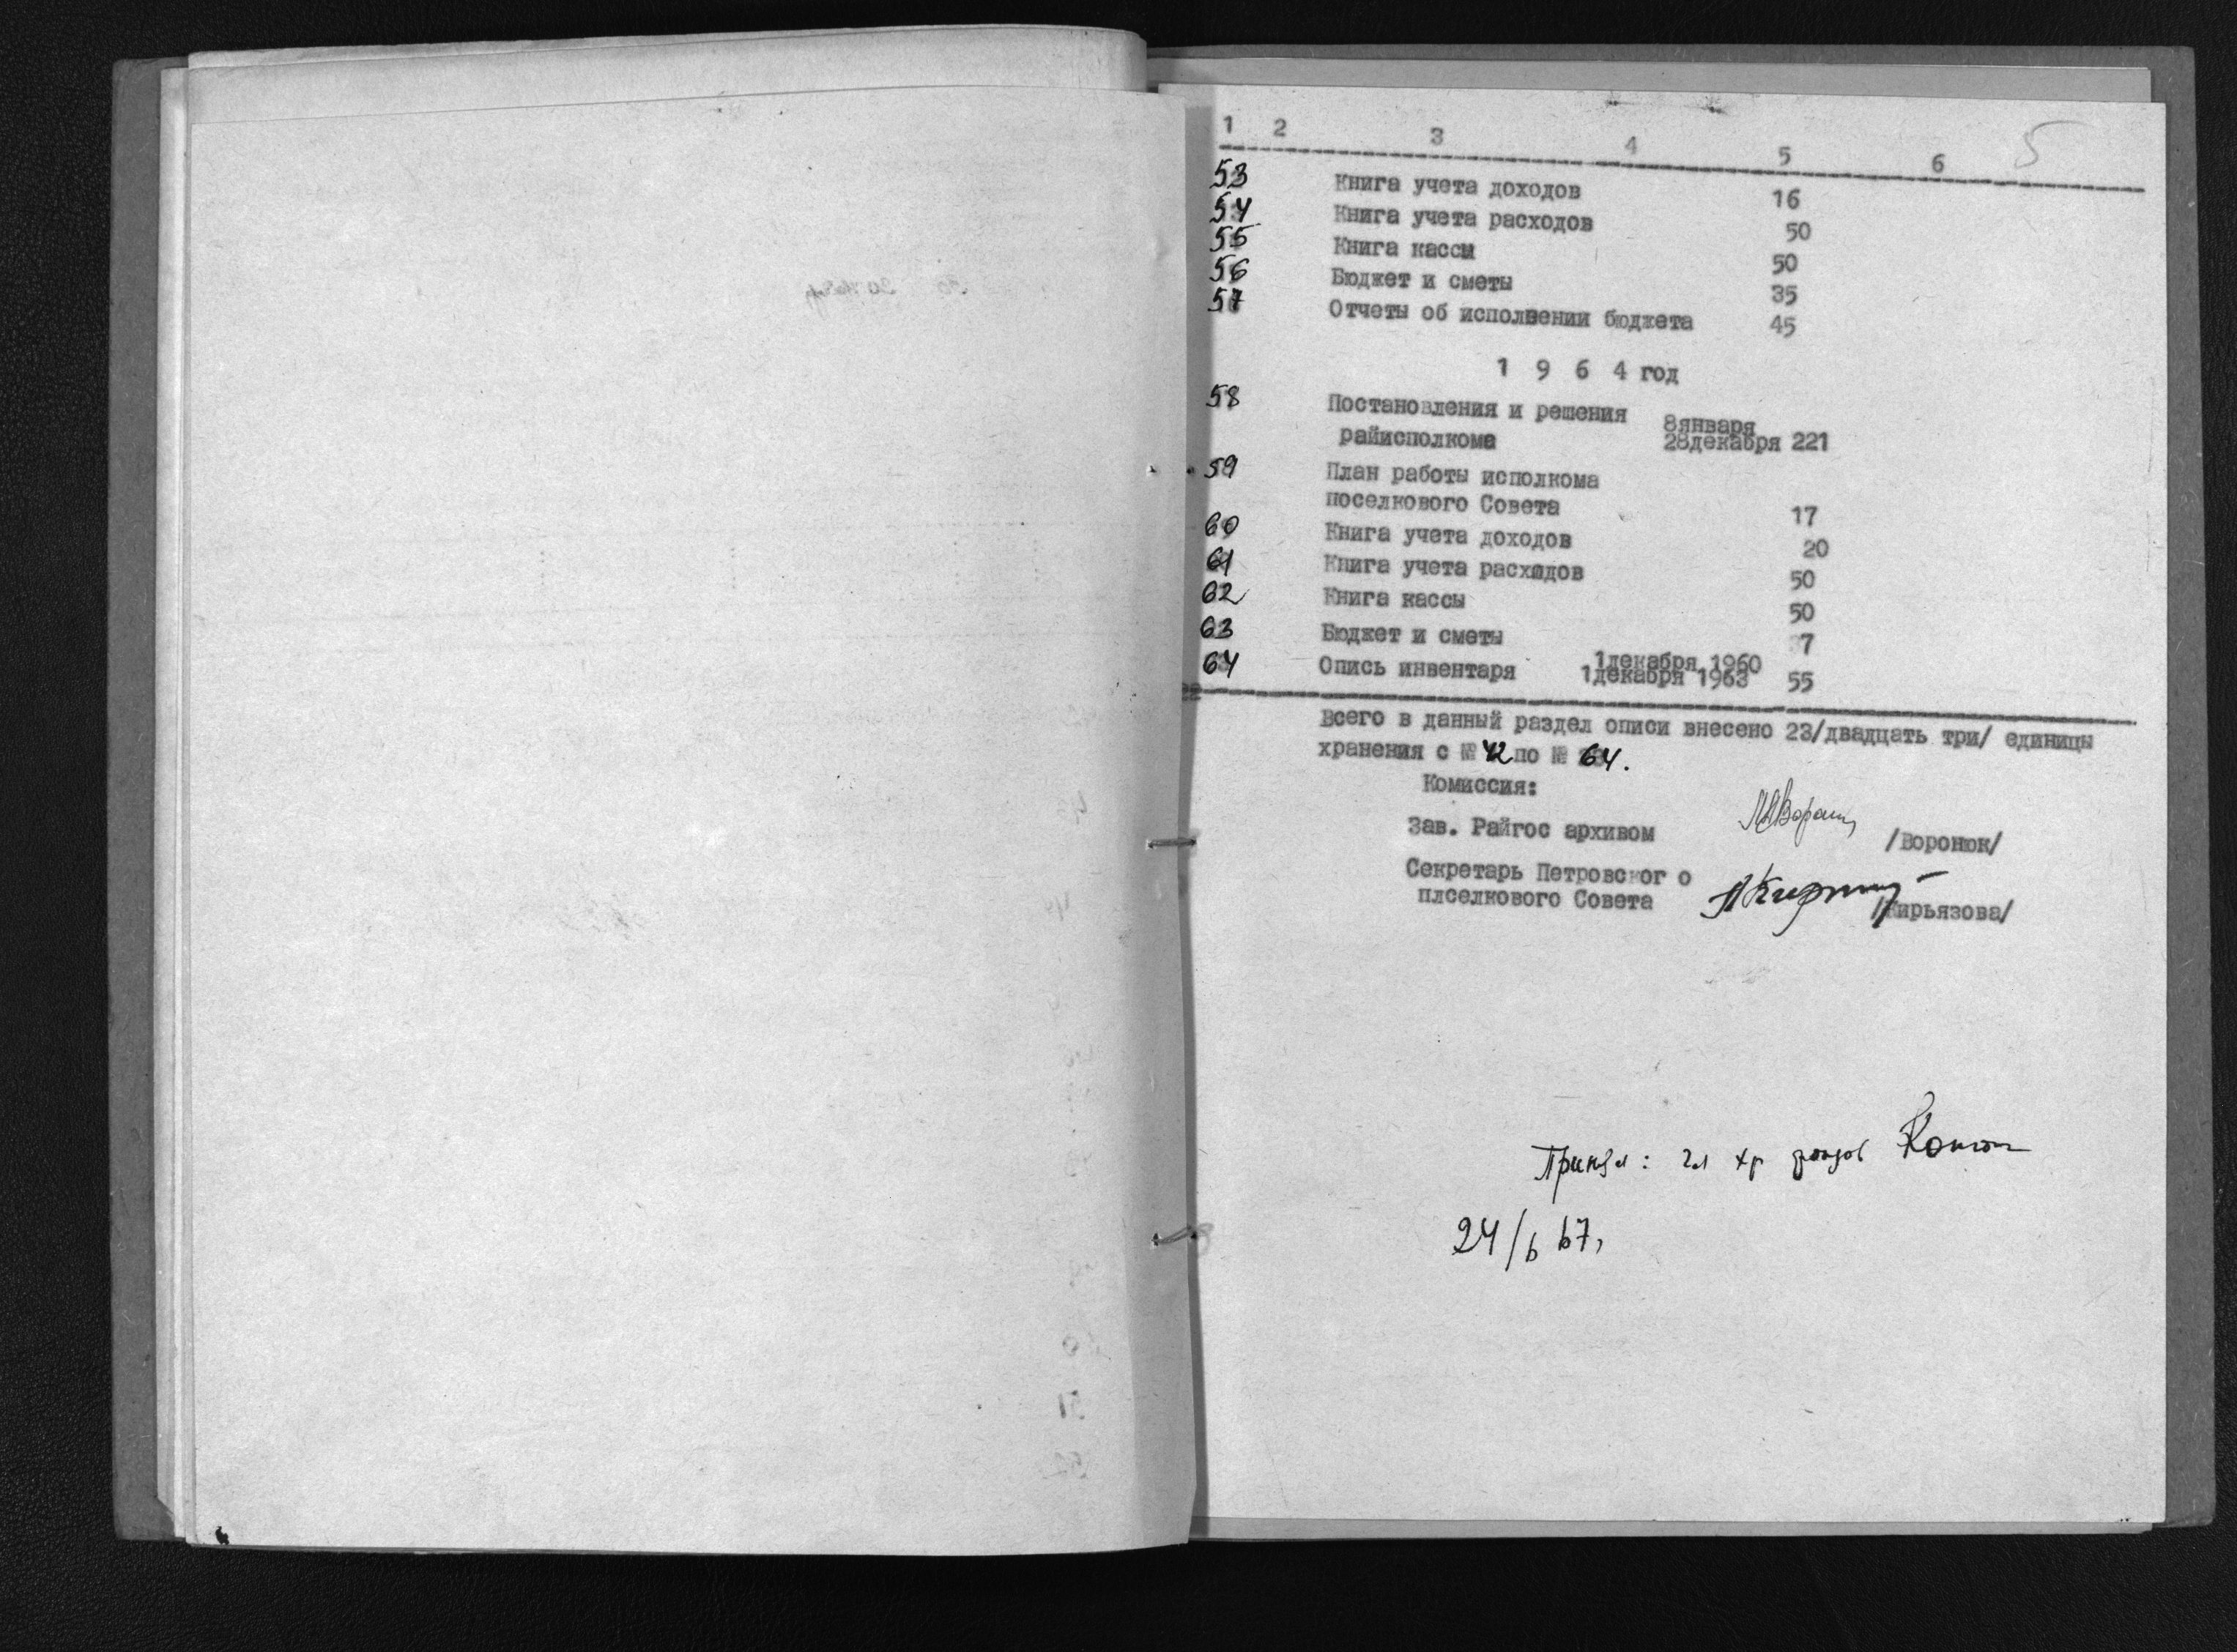 1 2 3 4 5 6 5
53 Книга учета доходов 16
54 Книга учета расходов 50
55 Книга кассы 50
56 Бюджет и сметы 35
57 Отчеты об исполнении бюджета 45
1 9 6 4 год
58 Постановления и решения 8января
райисполкома 28декабря 221
59 План работы исполкома
поселкового Совета 17
60 Книга учета доходов 20
61 Книга учета расходов 50
62 Книга кассы 50
63 Бюджет и сметы 7
64 Опись инвентаря 1декабря 1960
1декабря 1963 55
Всего в данный раздел описи внесено 23/двадцать три/ единицы
хранения с № 42 по № 64.
Комиссия:
Зав. Райгос архивом /Воронюк/
Секретарь Петровског о
плселкового Совета /Кирьязова/
Принял: гл хр фондов
24/6 67,